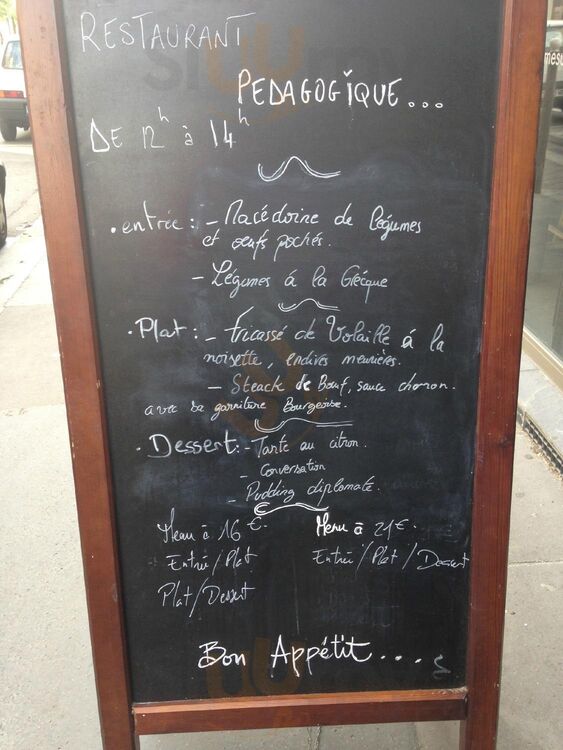 RESTAURANT
PEDAGOGIQUE...
DE 12h à 14h
• entrée : - Macédoine de légumes
et oeufs pochés.
- Légumes à la Grècque
• Plat : - fricassé de Volaille à la
noisette, endives meunières.
- Steack de Bœuf, sauce choron.
avec sa garniture Bourgeoise.
• Dessert : - Tarte au citron.
- Conversation
- Pudding diplomate.
Menu à 16 €.
Entrée/Plat
Plat/Dessert
Menu à 21 €.
Entrée/Plat/Dessert
Bon Appétit....